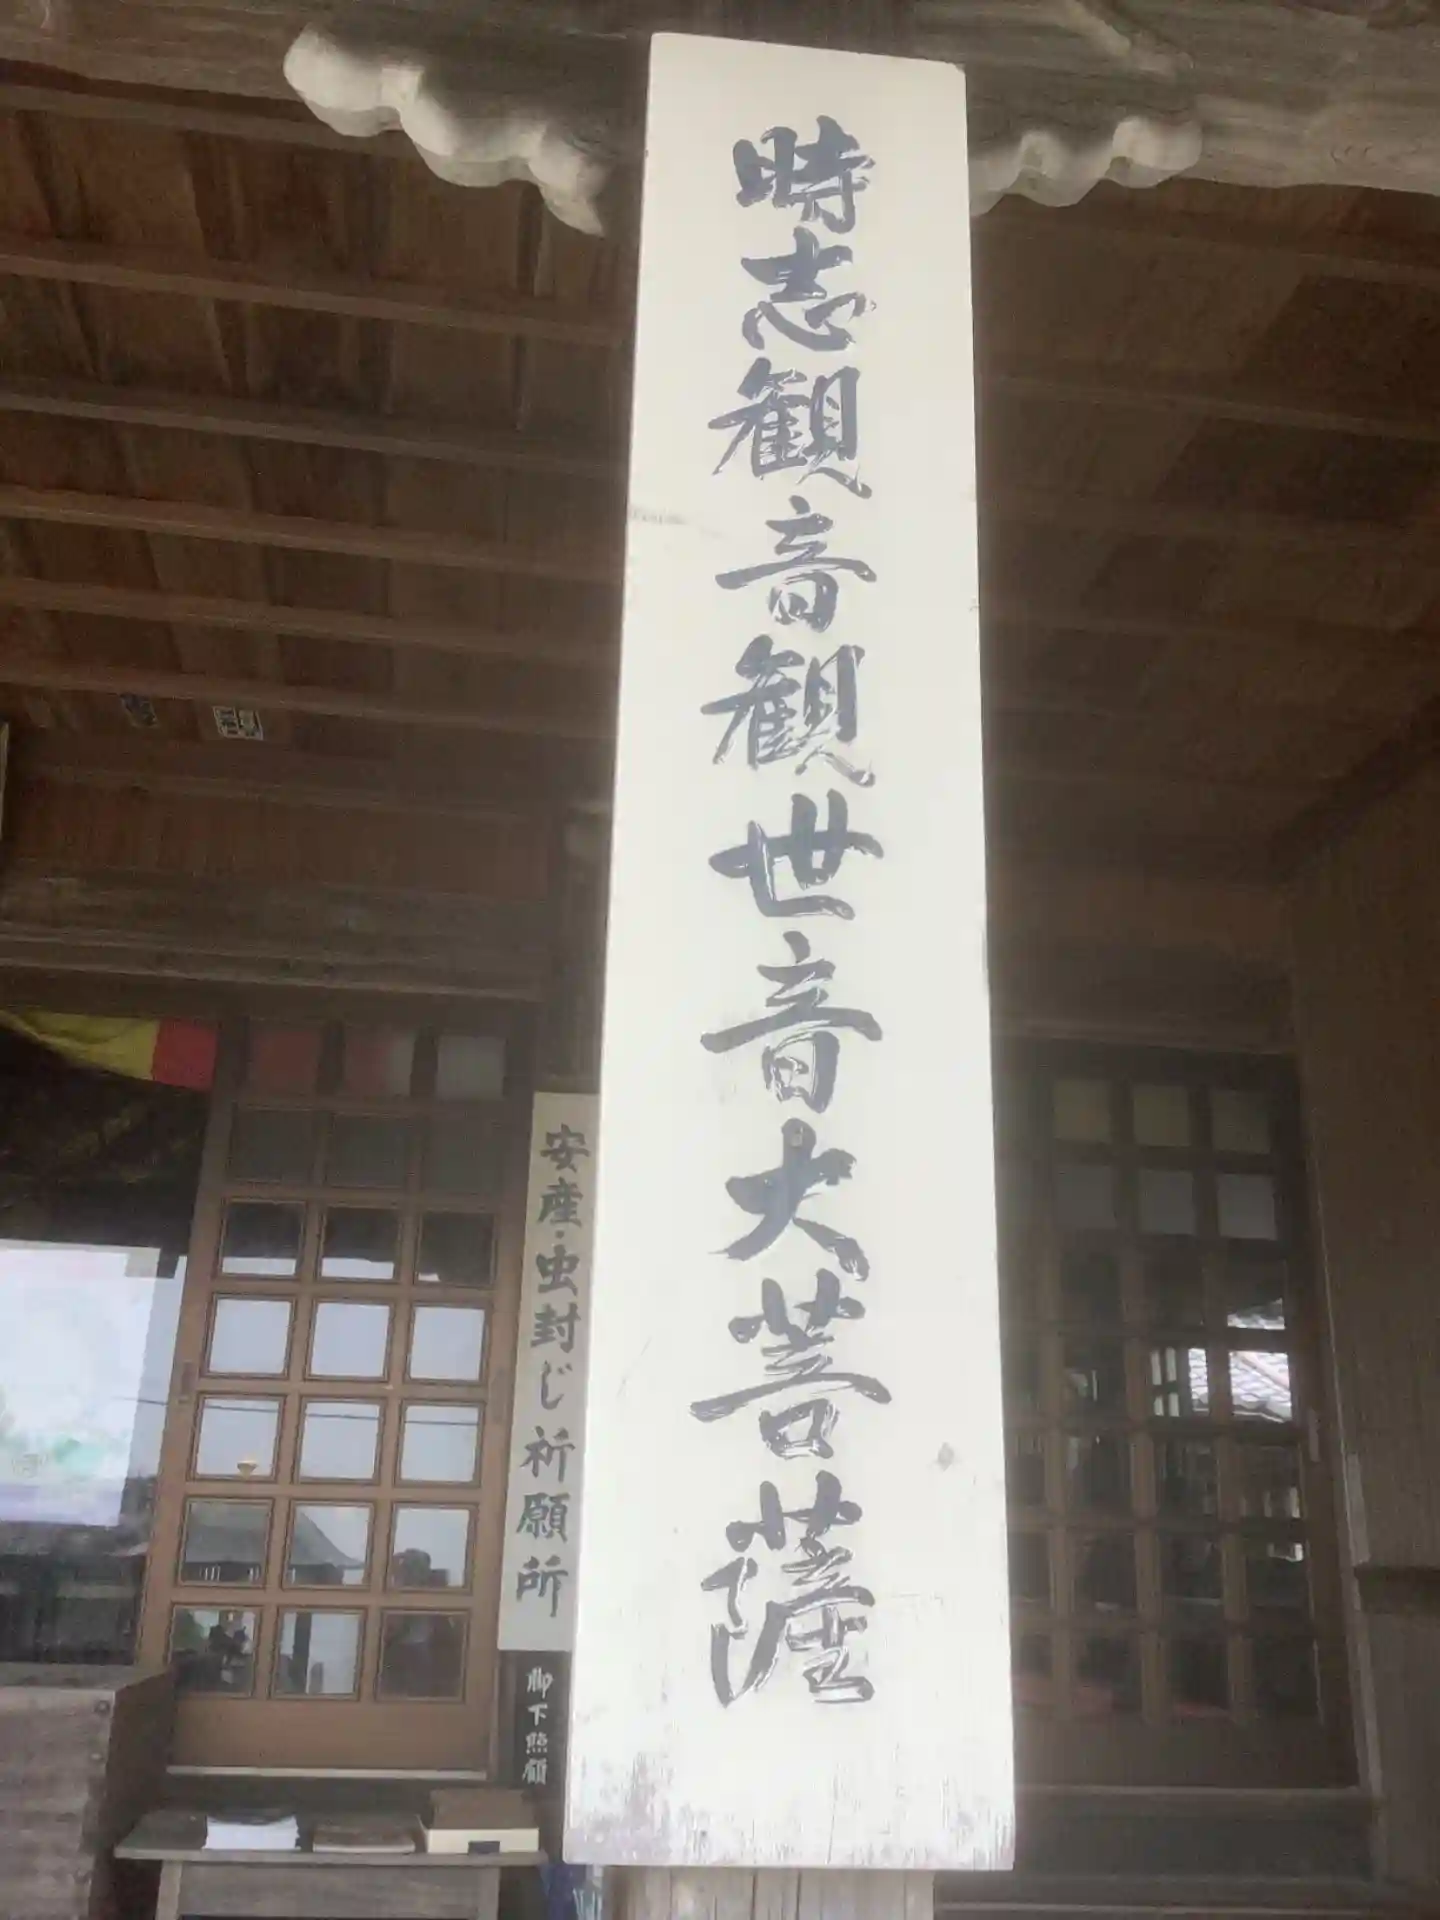 時志観音観世音大菩薩
安産・虫封じ祈願所
脚下照顧